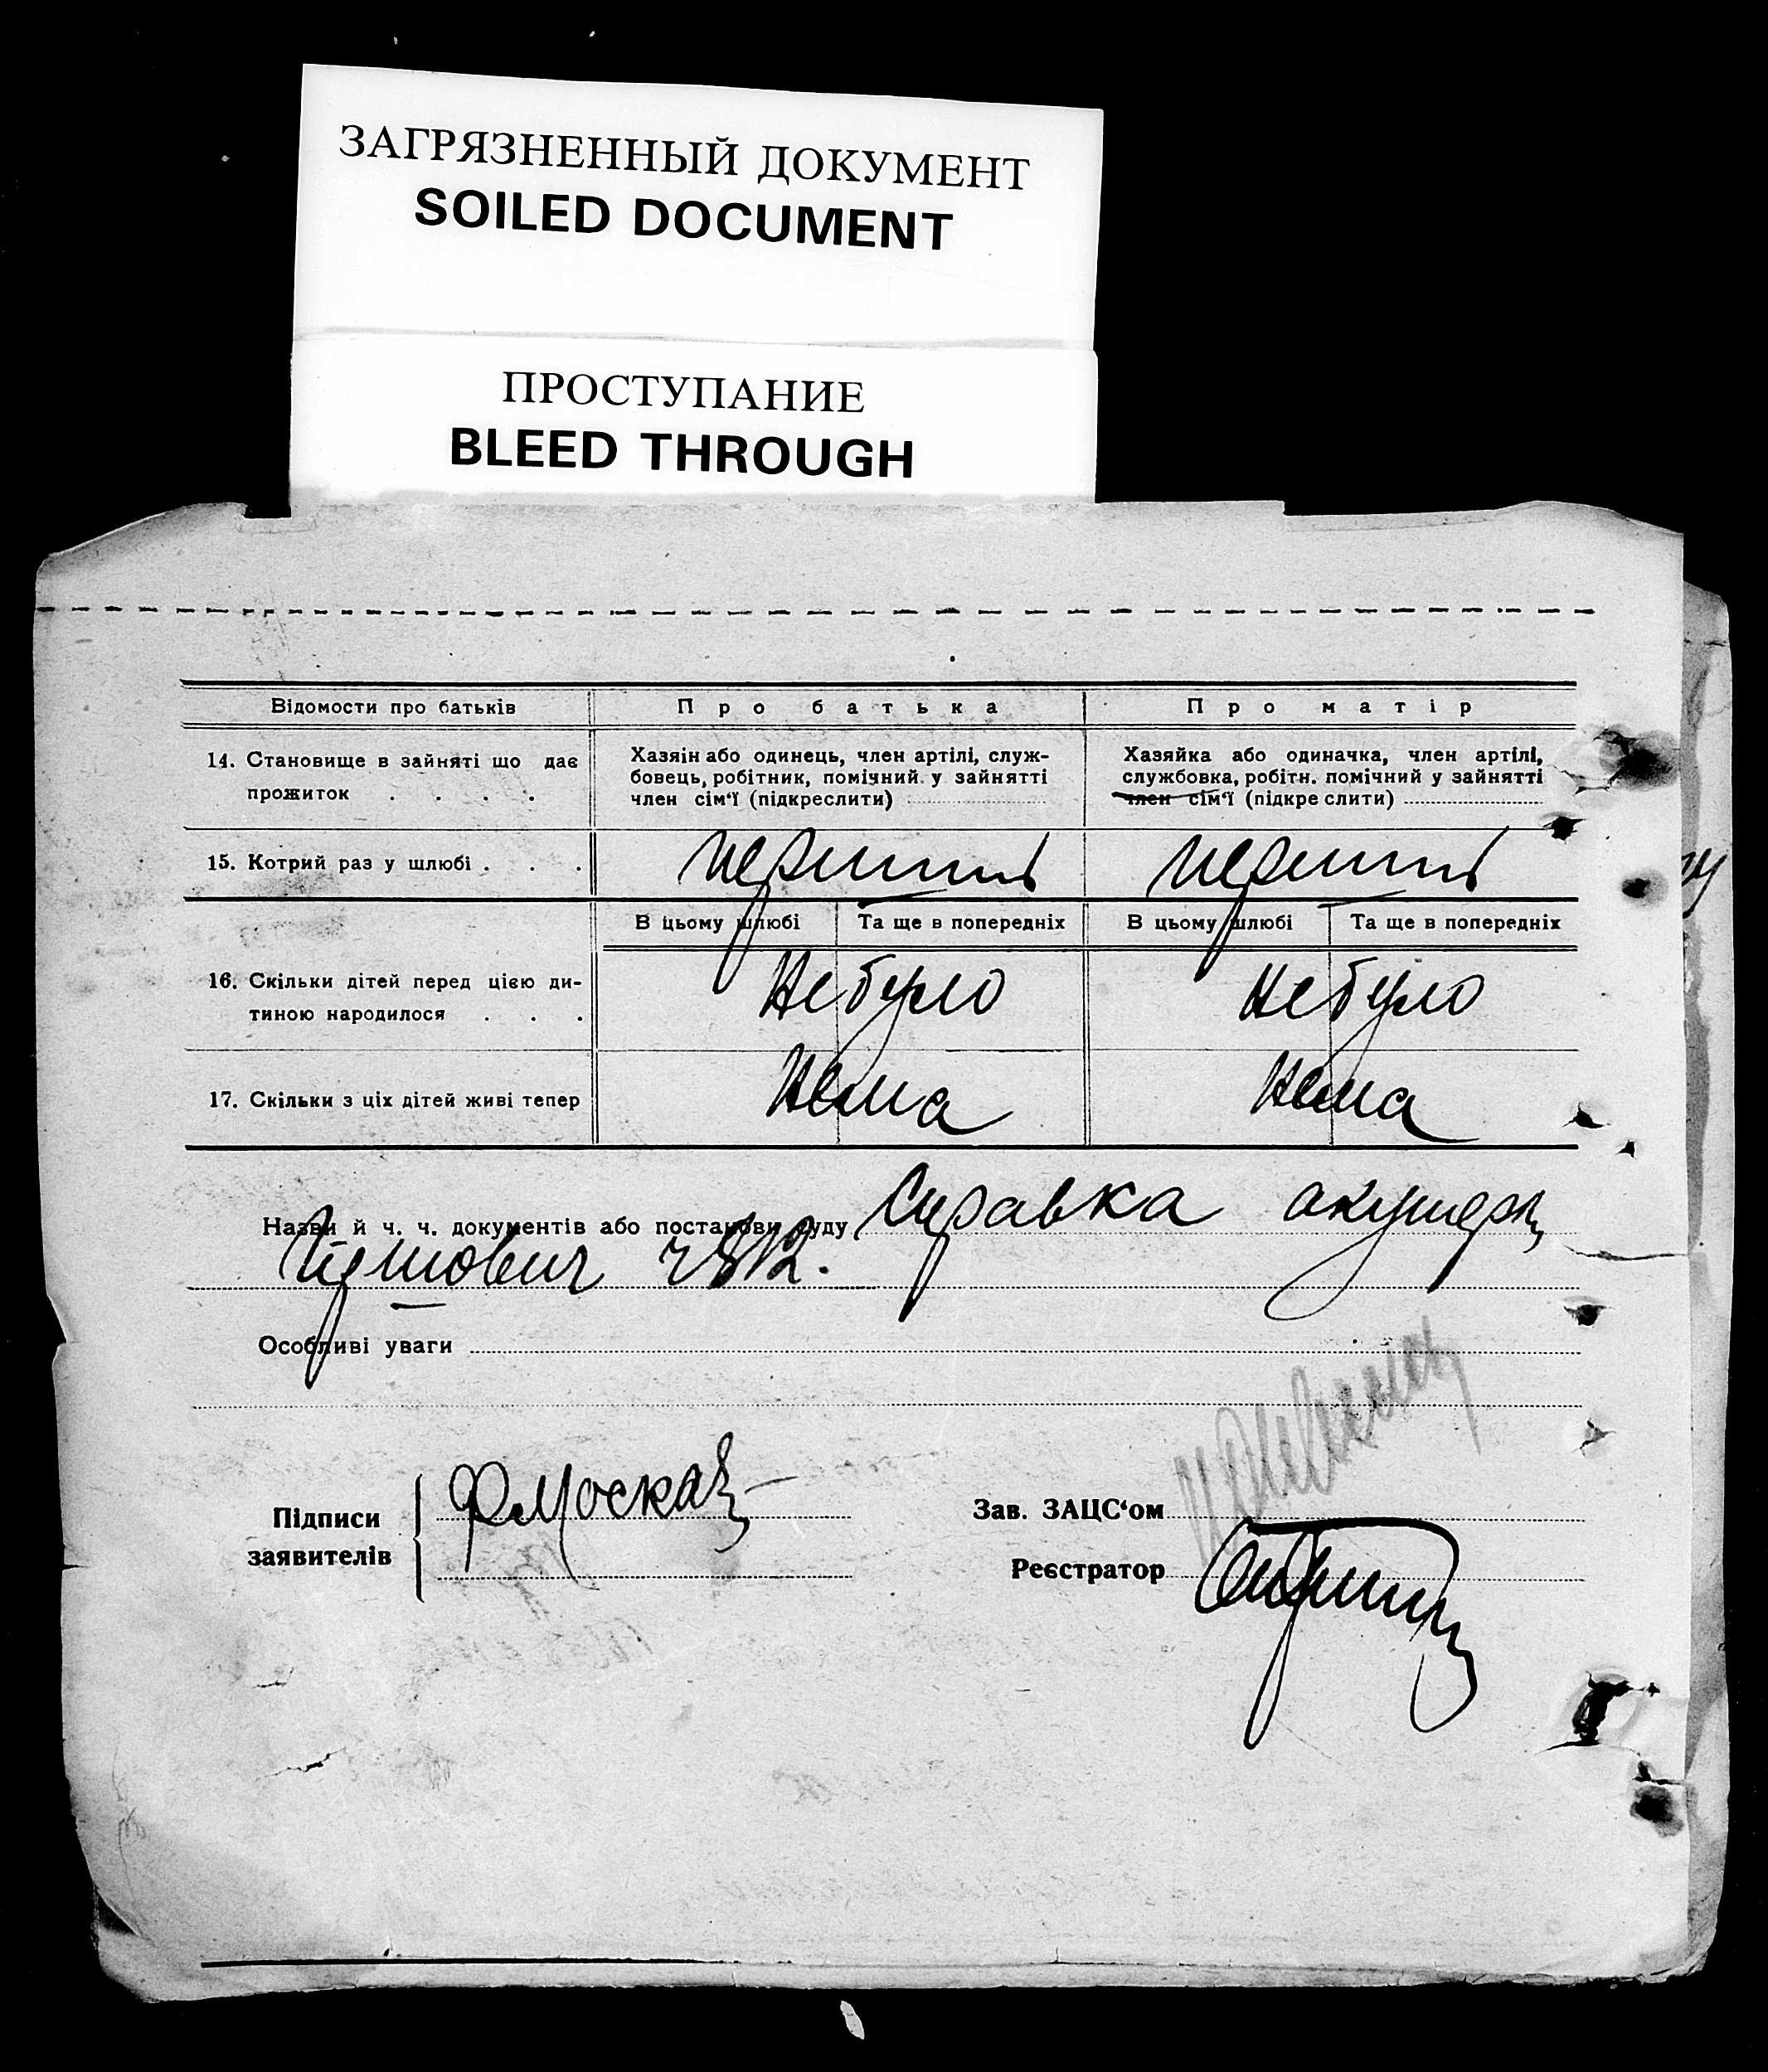 ЗАГРЯЗНЕННЫЙ ДОКУМЕНТ
SOILED DOCUMENT
ПРОСТУПАНИЕ
BLEED THROUGH
Відомости про батьків
Про батька
Про матір
14. Становище в зайняті що дає
прожиток . . . .
Хазяін або одинець, член артілі, служ-
бовець, робітник, помічний у зайнятті
член сім'ї (підкреслити)
Хазяйка або одиначка, член артілі,
службовка, робітн. помічний у зайнятті
член сім'ї (підкреслити)
15. Котрий раз у шлюбі . . .
перший
перший
В цьому шлюбі
Та ще в попередніх
В цьому шлюбі
Та ще в попередніх
16. Скільки дітей перед цією ди-
тиною народилося . . .
Не було
Не було
17. Скільки з ціх дітей живі тепер
Нема
Нема
Назви й ч. ч. документів або постанови суду Справка акушерк
Особливі уваги
Підписи
заявителів
Зав. ЗАЦС'ом
Реєстратор